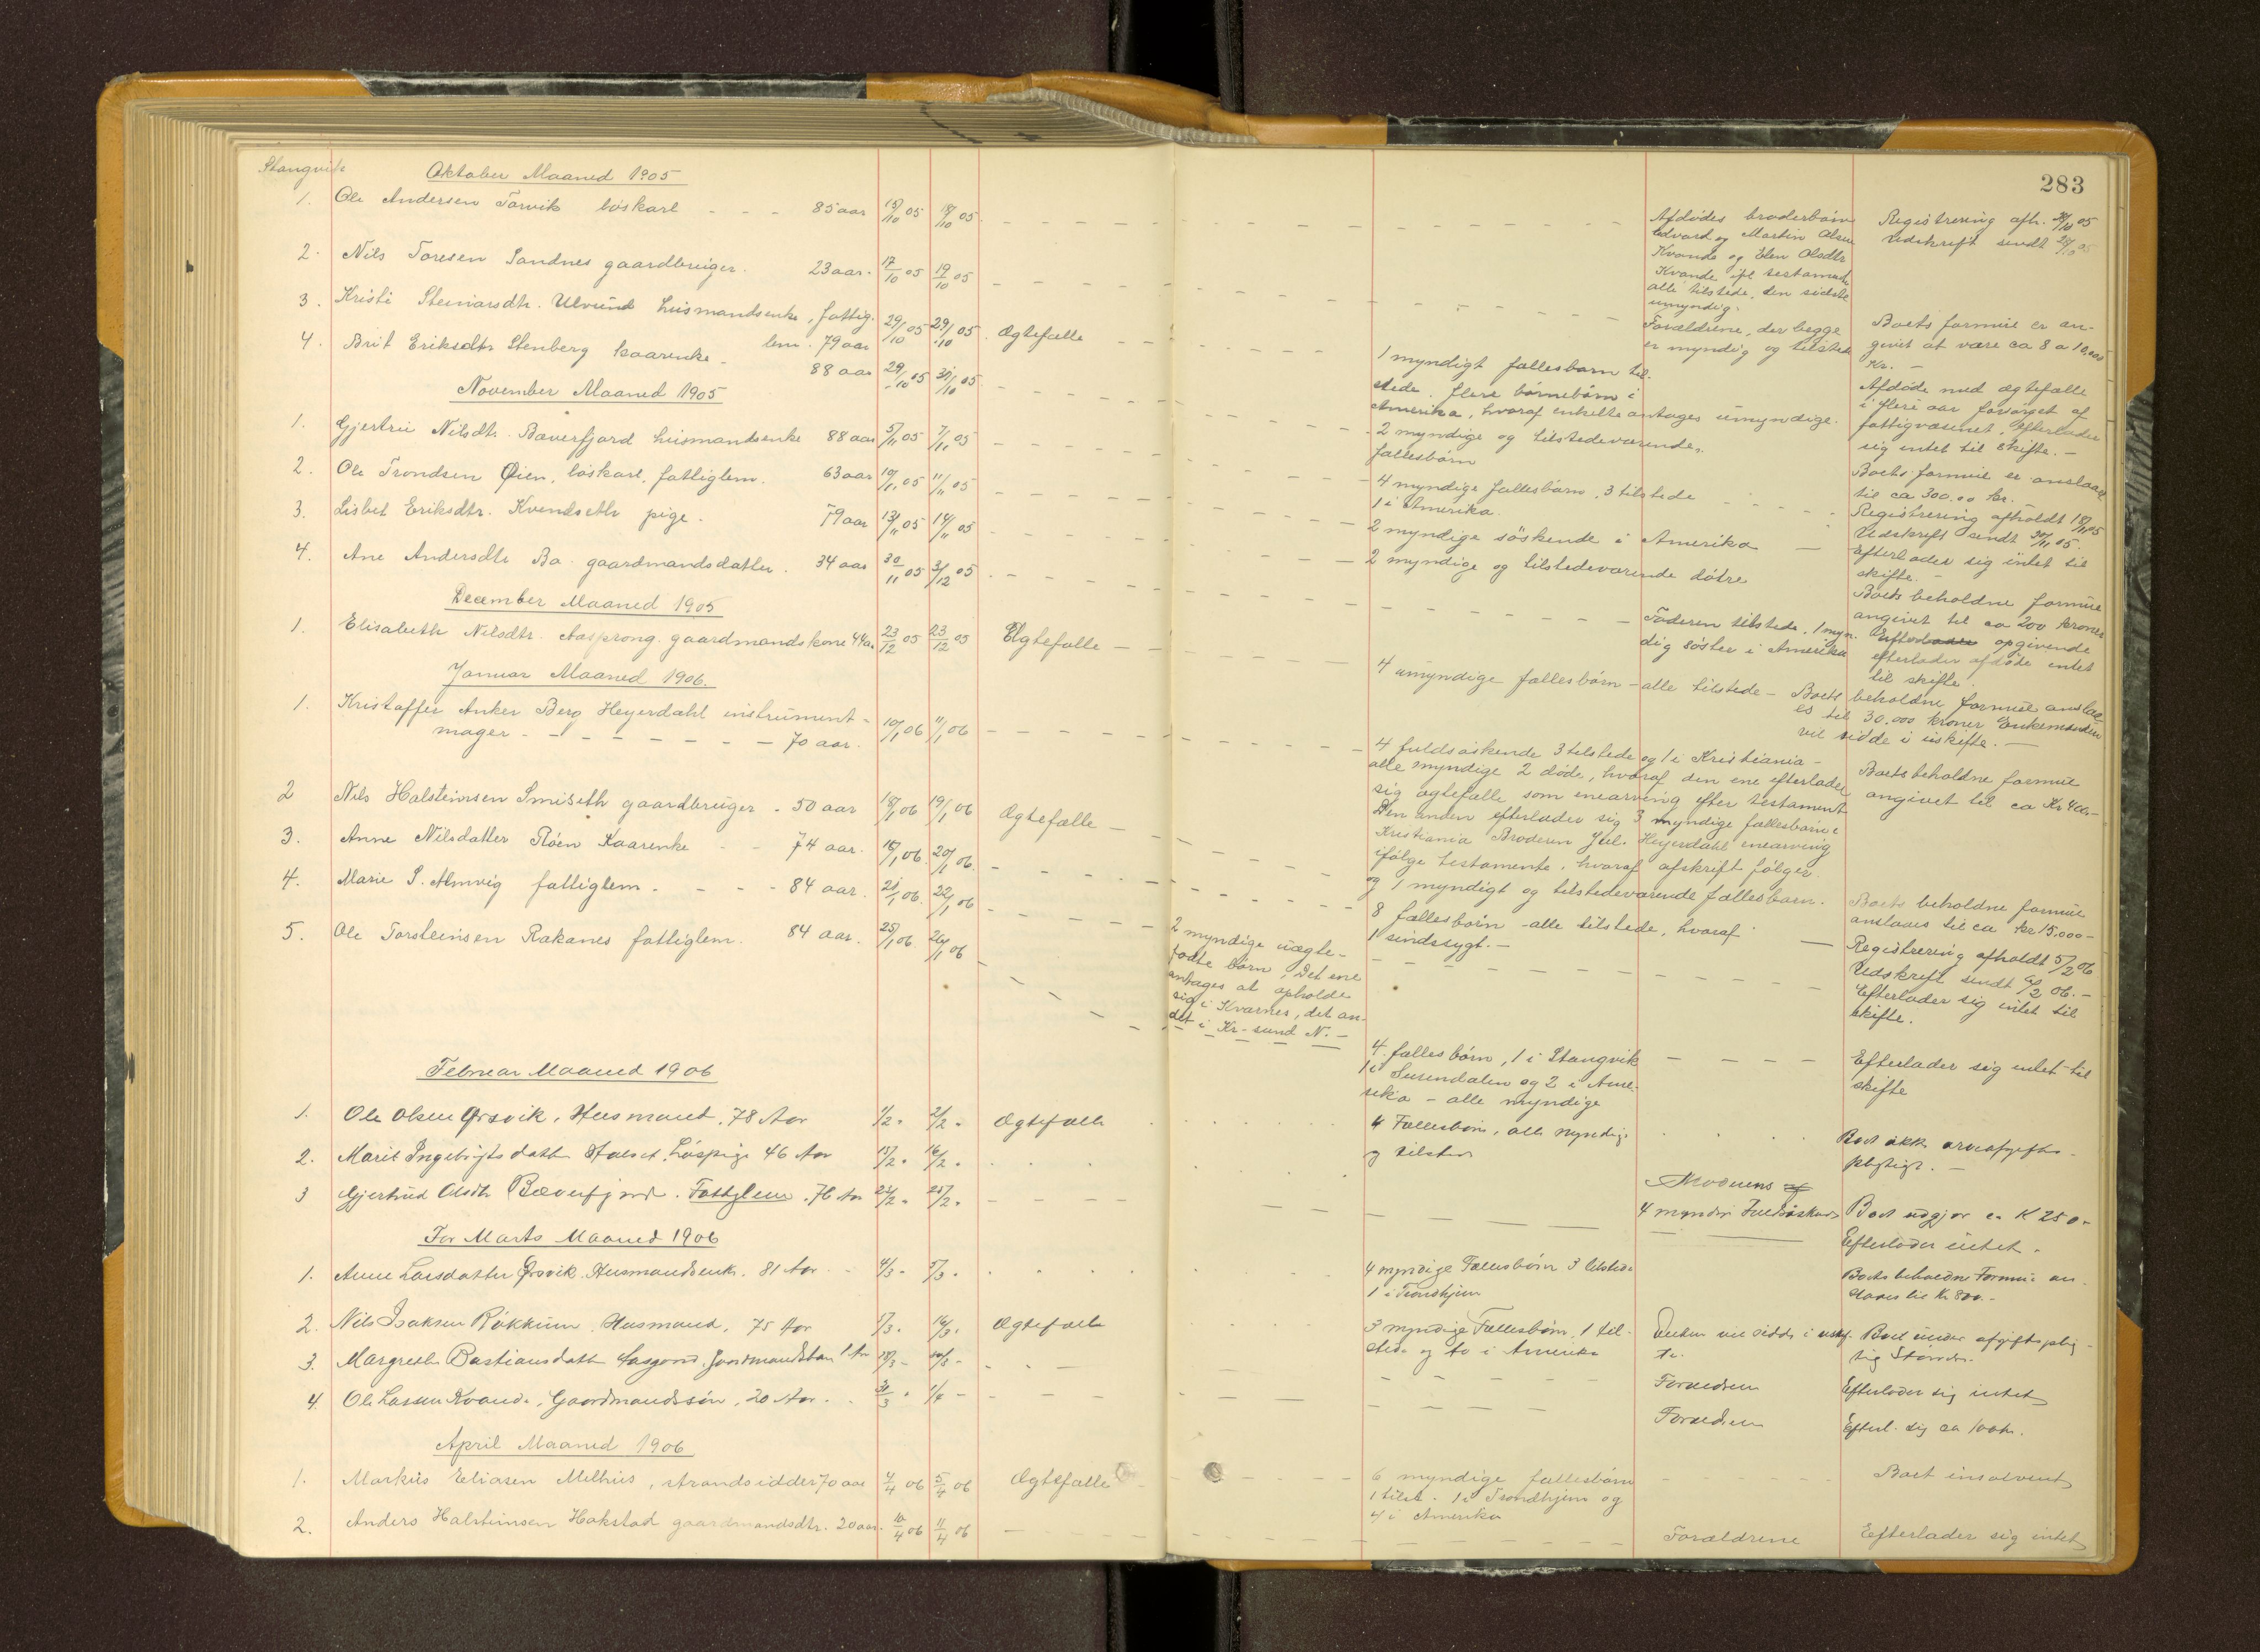 Stangvik
Oktober Maaned 1905
1. Ole Andersen Torvik løskarl - - - 85 aar 15/10 05 18/10 05
2. Nils Toresen Sandnes gaardbruger. 23 aar. 17/10 05 19/10 05
3. Kristi Steinarsdtr. Ulvund husmandsenke, fattig-
lem. 79 aar 29/10 05 29/10 05. Ægtefælle
4. Brit Eriksdtr Stenberg kaarenke -
88 aar 29/10 05 31/10 05
November Maaned 1905
1. Gjertru Nilsdtr. Bæverfjord husmandsenke 88 aar 5/11 05 7/11 05
2. Ole Trondsen Øien, løskarl, fattiglem. 63 aar 10/11 05 11/11 05
3. Lisbet Eriksdtr. Kvendseth pige. 79 aar 13/11 05 14/11 05
4. Ane Andersdtr Bø gaardmandsdatter. 34 aar 30/11 05 3/12 05
December Maaned 1905
1. Elisabeth Nilsdtr. Aasprong gaardmandskone 44 a. 23/12 05 23/12 05 Ægtefælle
Januar Maaned 1906.
1. Kristoffer Anker Berg Heyerdahl instrument-
mager - - - - - - - 70 aar. 10/1 06 11/1 06
2 Nils Halsteinsen Smiseth gaardbruger - 50 aar 18/1 06 19/1 06 Ægtefælle
3. Anne Nilsdatter Røen Kaarenke - - 74 aar. 16/1 06. 20/1 06.
4. Marie S. Almvig fattiglem - - - - 84 aar. 21/1 06. 22/1 06
5. Ole Torsteinsen Rakanes fattiglem. 84 aar. 25/1 06. 26/1 06
Februar Maaned 1906
1. Ole Olsen Ørsvik, Husmand, 78 Aar 1/2 - 2/2 - Ægtefælle
2. Marit Ingebrigtsdatter Halset, Løspige 46 Aar 15/2 - 16/2 -
3 Gjertrud Olsdtr Bæverfjord. Fattiglem. 76 Aar 25/2 -
For Marts Maaned 1906
1. Anne Larsdatter Ørsvik. Husmandsenke. 81 Aar - 4/3 - 5/3 -
2. Nils Isaksen Røkkum. Husmand, 75 Aar 16/3 - Ægtefælle
3. Margrethe Bastiansdatter Aasgaard, Gaardmandsbarn 1 Aar 18/3 -
4. Ole Larsen Kvande, Gaardmandssøn, 20 Aar. 31/3 - 1/4 -
April Maaned 1906
1. Markus Eliasen Melhus, strandsidder 70 aar 4/4 06 5/4 06 Ægtefælle
2. Anders Halsteinsen Hakstad gaardmandsdtr. 20 aar. 10/4 06 11/4 06
283
Afdødes broderbørn
Edvard og Martin Olsen
Kvande og Elen Olsdtr
Kvande ifl testament
alle tilstede, den sidste
umyndig.
Registrering afh. 26/10 05
Udskrift sendt 28/10 05
Forældrene, der begge
er myndig og tilstede
Boets formue er an-
givet at være ca 8 a 10,000
Kr. -
1 myndigt fællesbarn til-
stede, flere børnebørn i
Amerika, hvoraf enkelte antages umyndige.
Afdøde med ægtefælle
i flere aar forsørget af
fattigvæsenet, efterlader
sig intet til skifte. -
2 myndige og tilstedeværende
fællesbørn
Boets formue er anslaaet
til ca 300.00 kr. -
4 myndige fællesbørn, 3 tilstede
1 i Amerika.
Registrering afholdt 18/11 05
Udskrift sendt 30/11 05.
2 myndige søskende i Amerika
Efterlader sig intet til
skifte. -
2 myndige og tilstedeværende døtre
Boets beholdne formue
angivet til ca 200 kroner
Faderen tilstede, 1 myn-
dig søster i Amerika
Efterlader opgivende
efterlader afdøde intet
til skifte.
4 umyndige fællesbørn - alle tilstede - Boets beholdne formue anslaa-
es til 30.000 kroner Enkemanden
vil sidde i uskifte. -
4 fuldsøskende 3 tilstede og 1 i Kristiania -
alle myndige 2 døde, hvoraf den ene efterlader
sig ægtefælle som enearving efter testament
Den anden efterlader sig 3 myndige fællesbørn i
Kristiania Broderen Jul. Heyerdahl enearving
ifølge testamente, hvoraf afskrift følger.
Boets beholdne formue
angivet til ca Kr 400.-
og 1 myndigt og tilstedeværende fællesbarn.
Boets beholdne formue
anslaaes til ca kr 15.000-
8 fællesbørn - alle tilstede, hvoraf
1 sindssygt. -
Registrering afholdt 5/2 06
Udskrift sendt 6/2 06. -
2 myndige uægte-
fødte børn. Det ene
antages at opholde
sig i Kvarnes, det an-
det i Kr-sund N. -
Efterlader sig intet til
skifte.
4 fællesbørn, 1 i Stangvik
1 i Surendalen og 2 i Ame-
rika - alle myndige
Efterlader sig intet til
skifte
4 Fællesbørn, alle myndige
og tilstede
Boet ikke arveafgifts-
pligtigt. -
Moderens
4 myndige Fuldsøskende
Boet udgjør ca K 250-
Efterlader intet.
4 myndige Fællesbørn 3 tilstede
1 i Trondhjem
Boets beholdne Formue an-
slaaes til Kr 800.-
3 myndige Fællesbørn, 1 til-
stede og to i Amerika
Enken vil sidde i uskif-
te.
Boet under afgiftsplig-
tig Størrelse.
Forældrene
Efterlader sig intet
Forældrene
Efterl. sig ca 100 kr.
6 myndige fællesbørn
1 tilst. 1 i Trondhjem og
4 i Amerika
Boet insolvent
Forældrene
Efterlader sig intet